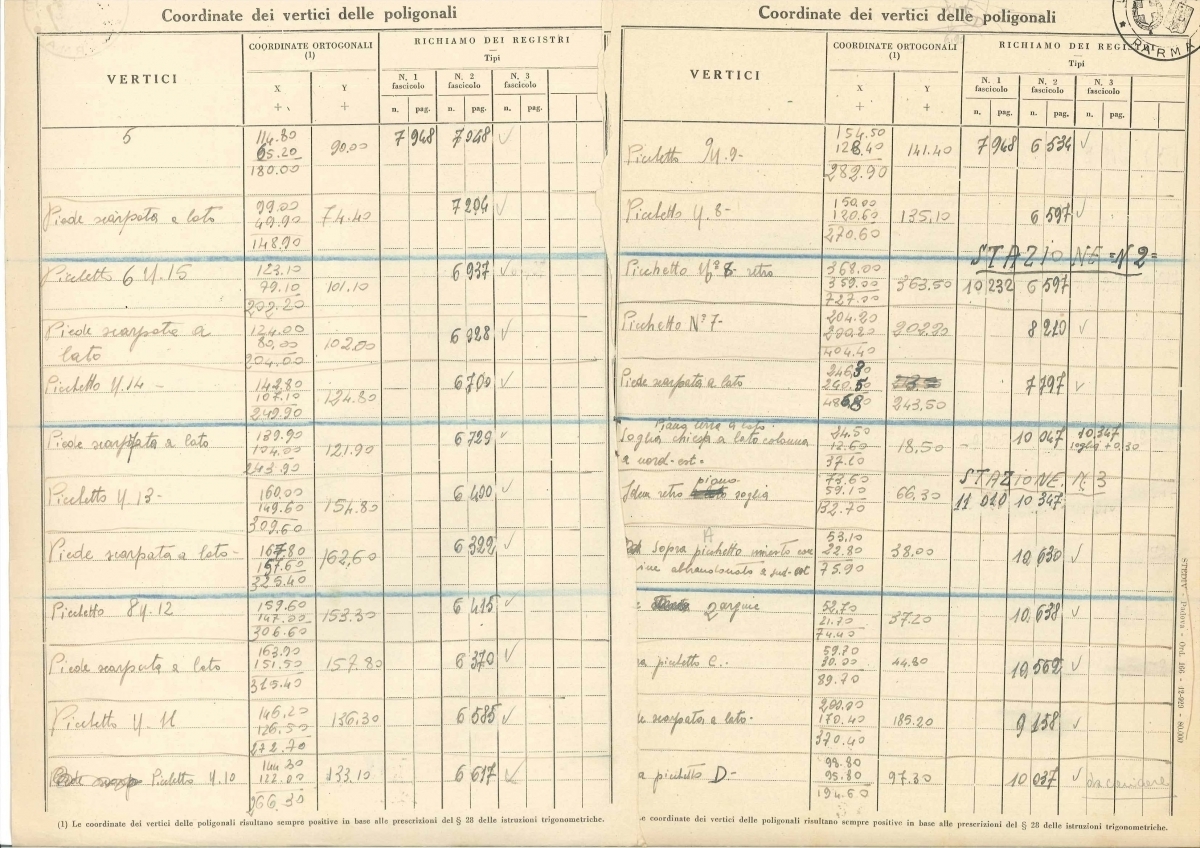 Coordinate dei vertici delle poligonali
VERTICI
COORDINATE ORTOGONALI
(1)
X
+
Y
+
RICHIAMO DEI REGISTRI
Tipi
N. 1
fascicolo
N. 2
fascicolo
N. 3
fascicolo
n. pag. n. pag. n. pag.
5 114.80 90.00 7 948 7 048 ✓
65.20
180.00
Piede scarpata a lato 99.00 74.40 7 204 ✓
49.90
148.90
Picchetto 6 N.15 123.10 101.10 6 937 ✓
79.10
202.20
Piede scarpata a 124.00 102.00 6 928 ✓
lato 80.00
204.00
Picchetto N.14 - 142.80 124.80 6 700 ✓
107.10
249.90
Piede scarpata a lato 139.90 121.90 6 729 ✓
104.00
243.90
Picchetto N.13 - 160.00 154.80 6 400 ✓
149.60
309.60
Piede scarpata a lato - 167.80 162,60 6 322 ✓
157.60
325.40
Picchetto 8 N.12 159.60 153.30 6 415 ✓
147.00
306.60
Piede scarpata a lato 163.90 157.80 6 370 ✓
151.50
315.40
Picchetto N.11 146,20 136,30 6 585 ✓
126.50
272.70
Picchetto N.10 144.30 133.10 6 617 ✓
122.00
266.30
(1) Le coordinate dei vertici delle poligonali risultano sempre positive in base alle prescrizioni del § 28 delle istruzioni trigonometriche.
Coordinate dei vertici delle poligonali
PARMA
VERTICI
COORDINATE ORTOGONALI
(1)
X
+
Y
+
RICHIAMO DEI REGIS
Tipi
N. 1
fascicolo
N. 2
fascicolo
N. 3
fascicolo
n. pag. n. pag. n. pag.
Picchetto N.9- 154.50 141.40 7 948 6 534 ✓
128.40
282.90
Picchetto N.8- 150.00 135,10 6 597 ✓
120.60
270.60
STAZIONE =N 2=
Picchetto N° 8- retro 368.00 363,50 10 232 6 597
359.00
727.00
Picchetto N° 7- 204.20 202.20 8 210 ✓
200.20
404.40
Piede scarpata a lato 246.30 7 797 ✓
240.5 243,50
486.80
Piano terra a lato.
Soglia chiesa a lato colonna 24.50 18,50 - 10 047 10.347
a nord-est= 12.60 soglia +0,30
37.10
STAZIONE. N. 3
piano
Idem retro soglia 73.60 66,30 11 010 10 347
59.10
132.70
A
sopra picchetto 53.10 38,00 10 630 ✓
abbandonato a sud-est 22.80
75.90
2 argine 52.70 37.20 10 638 ✓
21.70
74.40
a picchetto C.- 59.70 44.80 10,562 ✓
30.00
89.70
scarpata a lato- 200.00 185.20 9 158 ✓
170.40
370.40
a picchetto D.- 98.80 97.30 10 037 ✓ da caricare
95.80
194.60
e coordinate dei vertici delle poligonali risultano sempre positive in base alle prescrizioni del § 28 delle istruzioni trigonometriche.
STEDIV - Padova - Ord. 166 - 12-929 - 80.000